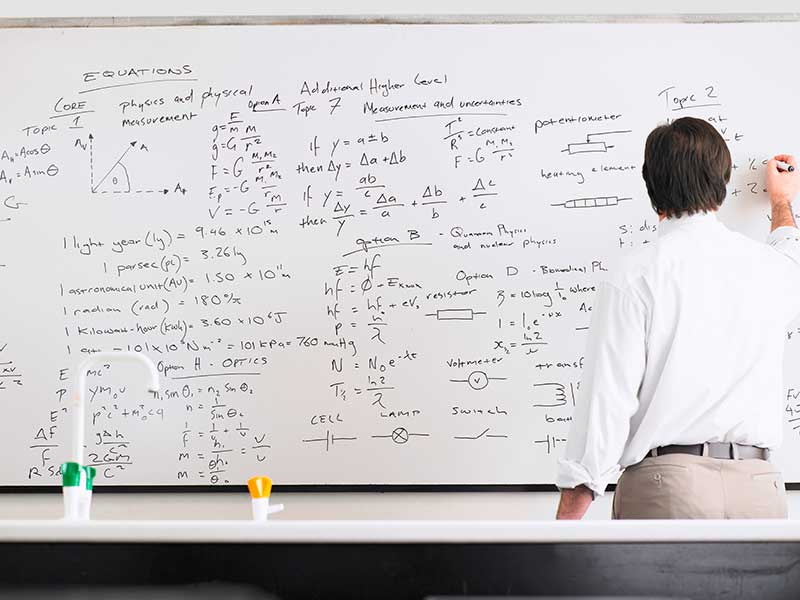 EQUATIONS
CORE
Topic 1
physics and physical
measurement
A_H = A cos θ
A_V = A sin θ
A_V
A
θ
Option A
g = F/m
F = G M₁M₂/r²
V = -G m/r
Additional Higher Level
Topic 7 Measurement and uncertainties
if y = a ± b
then Δy = Δa + Δb
if y = ab/c
then Δy/y = Δa/a + Δb/b + Δc/c
T²/R³ = constant
F = G M₁M₂/r²
potentiometer
heating element
Topic 2
1 light year (ly) = 9.46 × 10¹⁵ m
1 parsec (pc) = 3.26 ly
1 astronomical unit (AU) = 1.50 × 10¹¹ m
1 radian (rad) = 180°/π
1 Kilowatt-hour (kWh) = 3.60 × 10⁶ J
= 101 kPa = 760 mm Hg
Option B - Quantum Physics
and nuclear physics
E = hf
hf = φ + E
hf = hf₀ + eV
p = h/λ
N = N₀e^-λt
T½ = ln2/λ
resistor
Option D - Biomedical Ph
= 10 log where
ln2
voltmeter
V
Option H - OPTICS
n₁ sin θ₁ = n₂ sin θ₂
E = mc²
Δf/f
gΔh/c²
2GM/c²
CELL
LAMP
switch